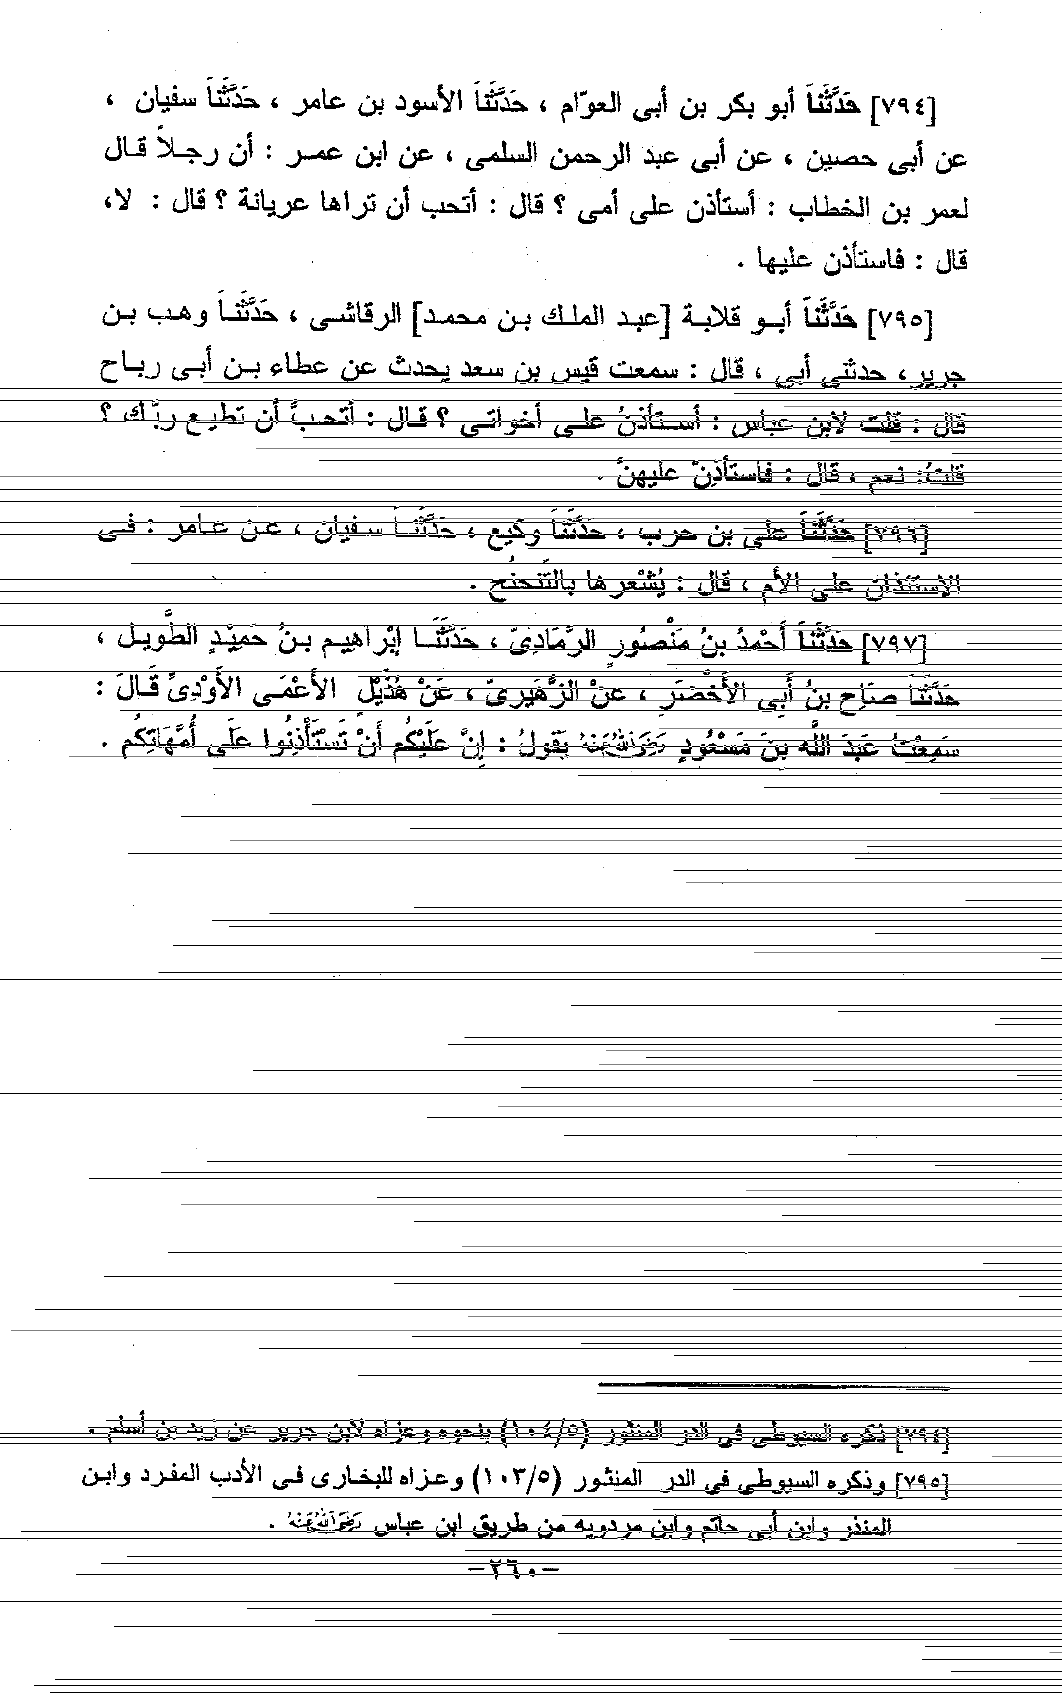 [٧٩٤] حَدَّثَنَا أبو بكر بن أبى العوّام ، حَدَّثَنَا الأسود بن عامر ، حَدَّثَنَا سفيان ،
عن أبى حصين ، عن أبى عبد الرحمن السلمى ، عن ابن عمـر : أن رجـلاً قـال
لعمر بن الخطاب : أستأذن على أمى ؟ قال : أتحب أن تراها عريانة ؟ قال : لا،
قال : فاستأذن عليها .
[٧٩٥] حَدَّثَنَا أبـو قلابـة [عبـد الملـك بـن محمـد] الرقاشـى ، حَدَّثَنَـا وهـب بـن
جرير ، حدثنى أبي ، قال : سمعت قيس بن سعد يحدث عن عطاء بـن أبـى ربـاح
قال : قلت لابن عباس : أسـتأذنُ علـى أخواتـى ؟ قـال : أتحـبُّ أن تطيـع ربَّك ؟
قلتُ: نعم ، قال : فاستأذِنْ عليهنَّ .
[٧٩٦] حَدَّثَنَا على بن حرب ، حَدَّثَنَا وكيع ، حَدَّثَنَـا سـفيان ، عـن عـامر : فـى
الاستئذان على الأم ، قال : يُشْعرها بالتَنحنُح .
[٧٩٧] حَدَّثَنَا أَحْمدُ بنُ مَنْصُورٍ الرَّمَادِىّ ، حَدَّثَنَـا إبْراهيـم بـنُ حَمِيْدٍ الطَّويـل ،
حَدَّثَنَا صَالِح بنُ أَبِي الأَخْضَرِ ، عَنْ الزُّهَيرىّ ، عَنْ هُذَيْلٍ الأَعْمَـى الأَوْدِىِّ قَـالَ :
سَمِعْتُ عَبدَ اللَّه بنَ مَسْعُودٍ رَضِيَ اللهُ عَنْهُ يَقُولُ : إِنَّ عَلَيْكُم أنْ تَسْتَأْذِنُوا عَلَى أُمَّهَاتِكُم .
[٧٩٤] ذكره السيوطي في الدر المنثور (١٠٤/٥) بنحوه وعزاه لابن جرير عن زيد بن أسلم .
[٧٩٥] وذكره السيوطي في الدر المنثور (١٠٣/٥) وعـزاه للبخـارى فـى الأدب المفـرد وابـن
المنذر وابن أبي حاتم وابن مردويه من طريق ابن عباس رَضِيَ اللهُ عَنْهُ .
-٢٦٠-